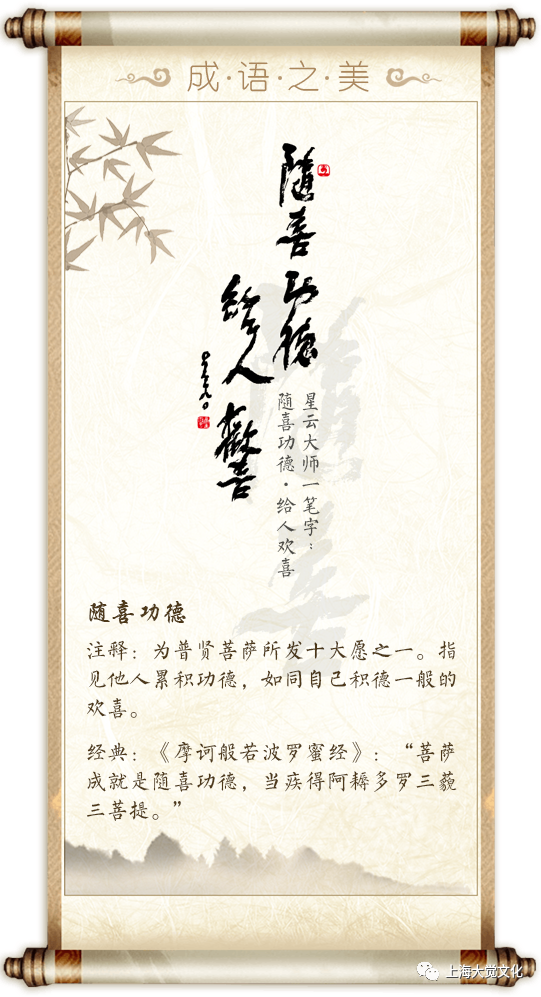 成·语·之·美
随喜功德
给人歡喜
星云大师一笔字：
随喜功德·给人欢喜
随喜
随喜功德
注释：为普贤菩萨所发十大愿之一。指
见他人累积功德，如同自己积德一般的
欢喜。
经典：《摩诃般若波罗蜜经》：“菩萨
成就是随喜功德，当疾得阿耨多罗三藐
三菩提。”
上海大觉文化